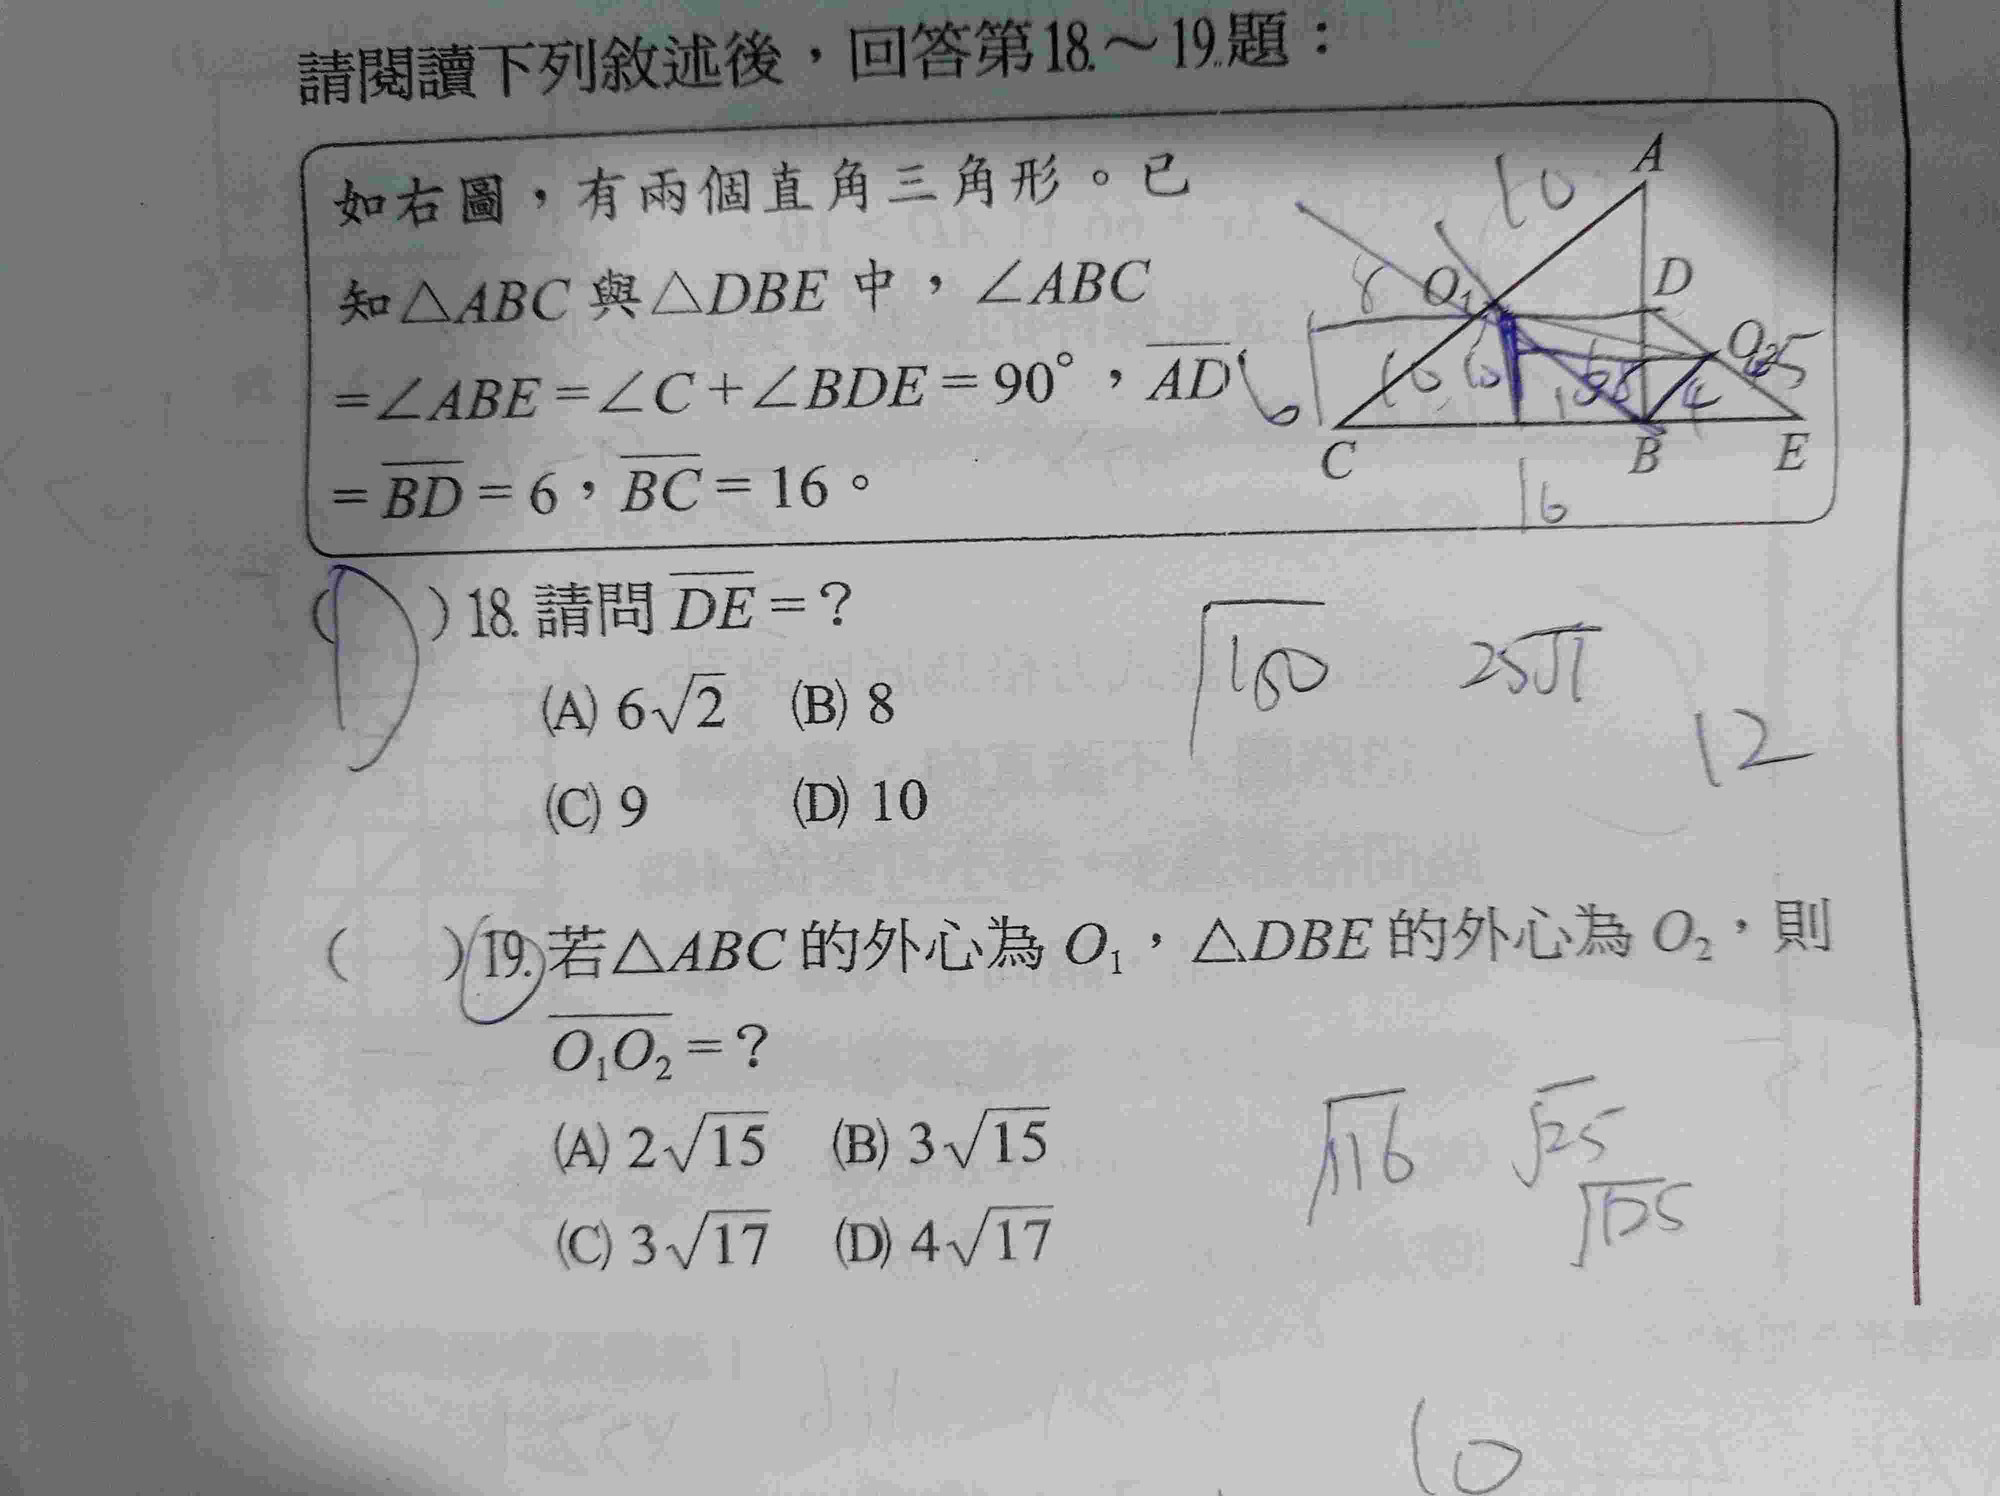 請閱讀下列敘述後，回答第18.～19.題：
如右圖，有兩個直角三角形。已
知△ABC與△DBE中，∠ABC
=∠ABE=∠C+∠BDE=90°，AD
=BD=6，BC=16。
A
10
D
O₁
8
O₂
5
6
10
6
4
C
B
E
16
( D ) 18. 請問DE=？
(A) 6√2 (B) 8
(C) 9 (D) 10
√180
12
( ) 19. 若△ABC的外心為O₁，△DBE的外心為O₂，則
O₁O₂=？
(A) 2√15 (B) 3√15
(C) 3√17 (D) 4√17
√116
√25
√125
10